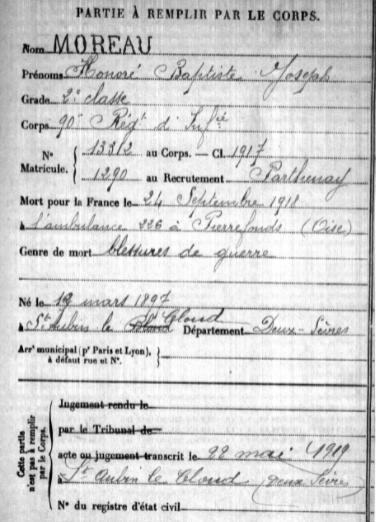 PARTIE À REMPLIR PAR LE CORPS.
Nom MOREAU
Prénoms Honoré Baptiste Joseph
Grade 2e classe
Corps 90e Régt d'Infrie
N° 13312 au Corps. — Cl. 1917
Matricule. 1290 au Recrutement Parthenay
Mort pour la France le 24 Septembre 1918
à l'ambulance 226 à Pierrefonds (Oise)
Genre de mort blessures de guerre
Né le 12 mars 1897
à St Aubin le Cloud Département Deux-Sèvres
Arrt municipal (pr Paris et Lyon),
à défaut rue et N°.
Cette partie
n'est pas à remplir
par le Corps.
Jugement rendu le
par le Tribunal de
acte ou jugement transcrit le 22 mai 1919
à St Aubin le Cloud (Deux Sèvres)
N° du registre d'état civil